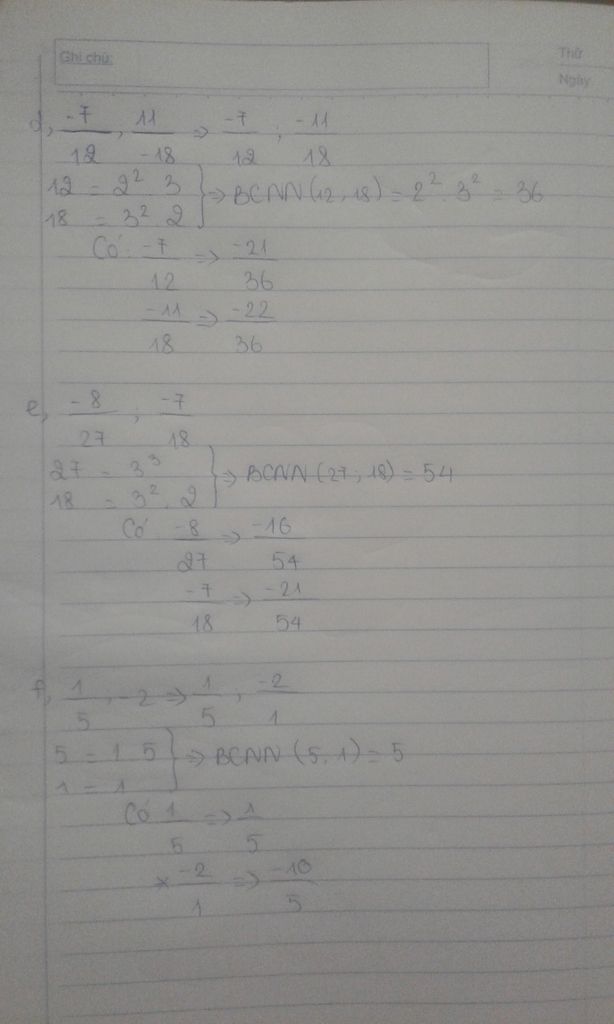 Ghi chú:
Thứ
Ngày
d, -7/12, 11/-18 => -7/12 ; -11/18
12 = 2² . 3
18 = 3² . 2 } => BCNN(12, 18) = 2² . 3² = 36
Có: -7/12 => -21/36
-11/18 => -22/36
e, -8/27 ; -7/18
27 = 3³
18 = 3² . 2 } => BCNN(27, 18) = 54
Có -8/27 => -16/54
-7/18 => -21/54
f, 1/5, -2 => 1/5, -2/1
5 = 1 . 5
1 = 1 } => BCNN(5, 1) = 5
Có 1/5 => 1/5
× -2/1 => -10/5